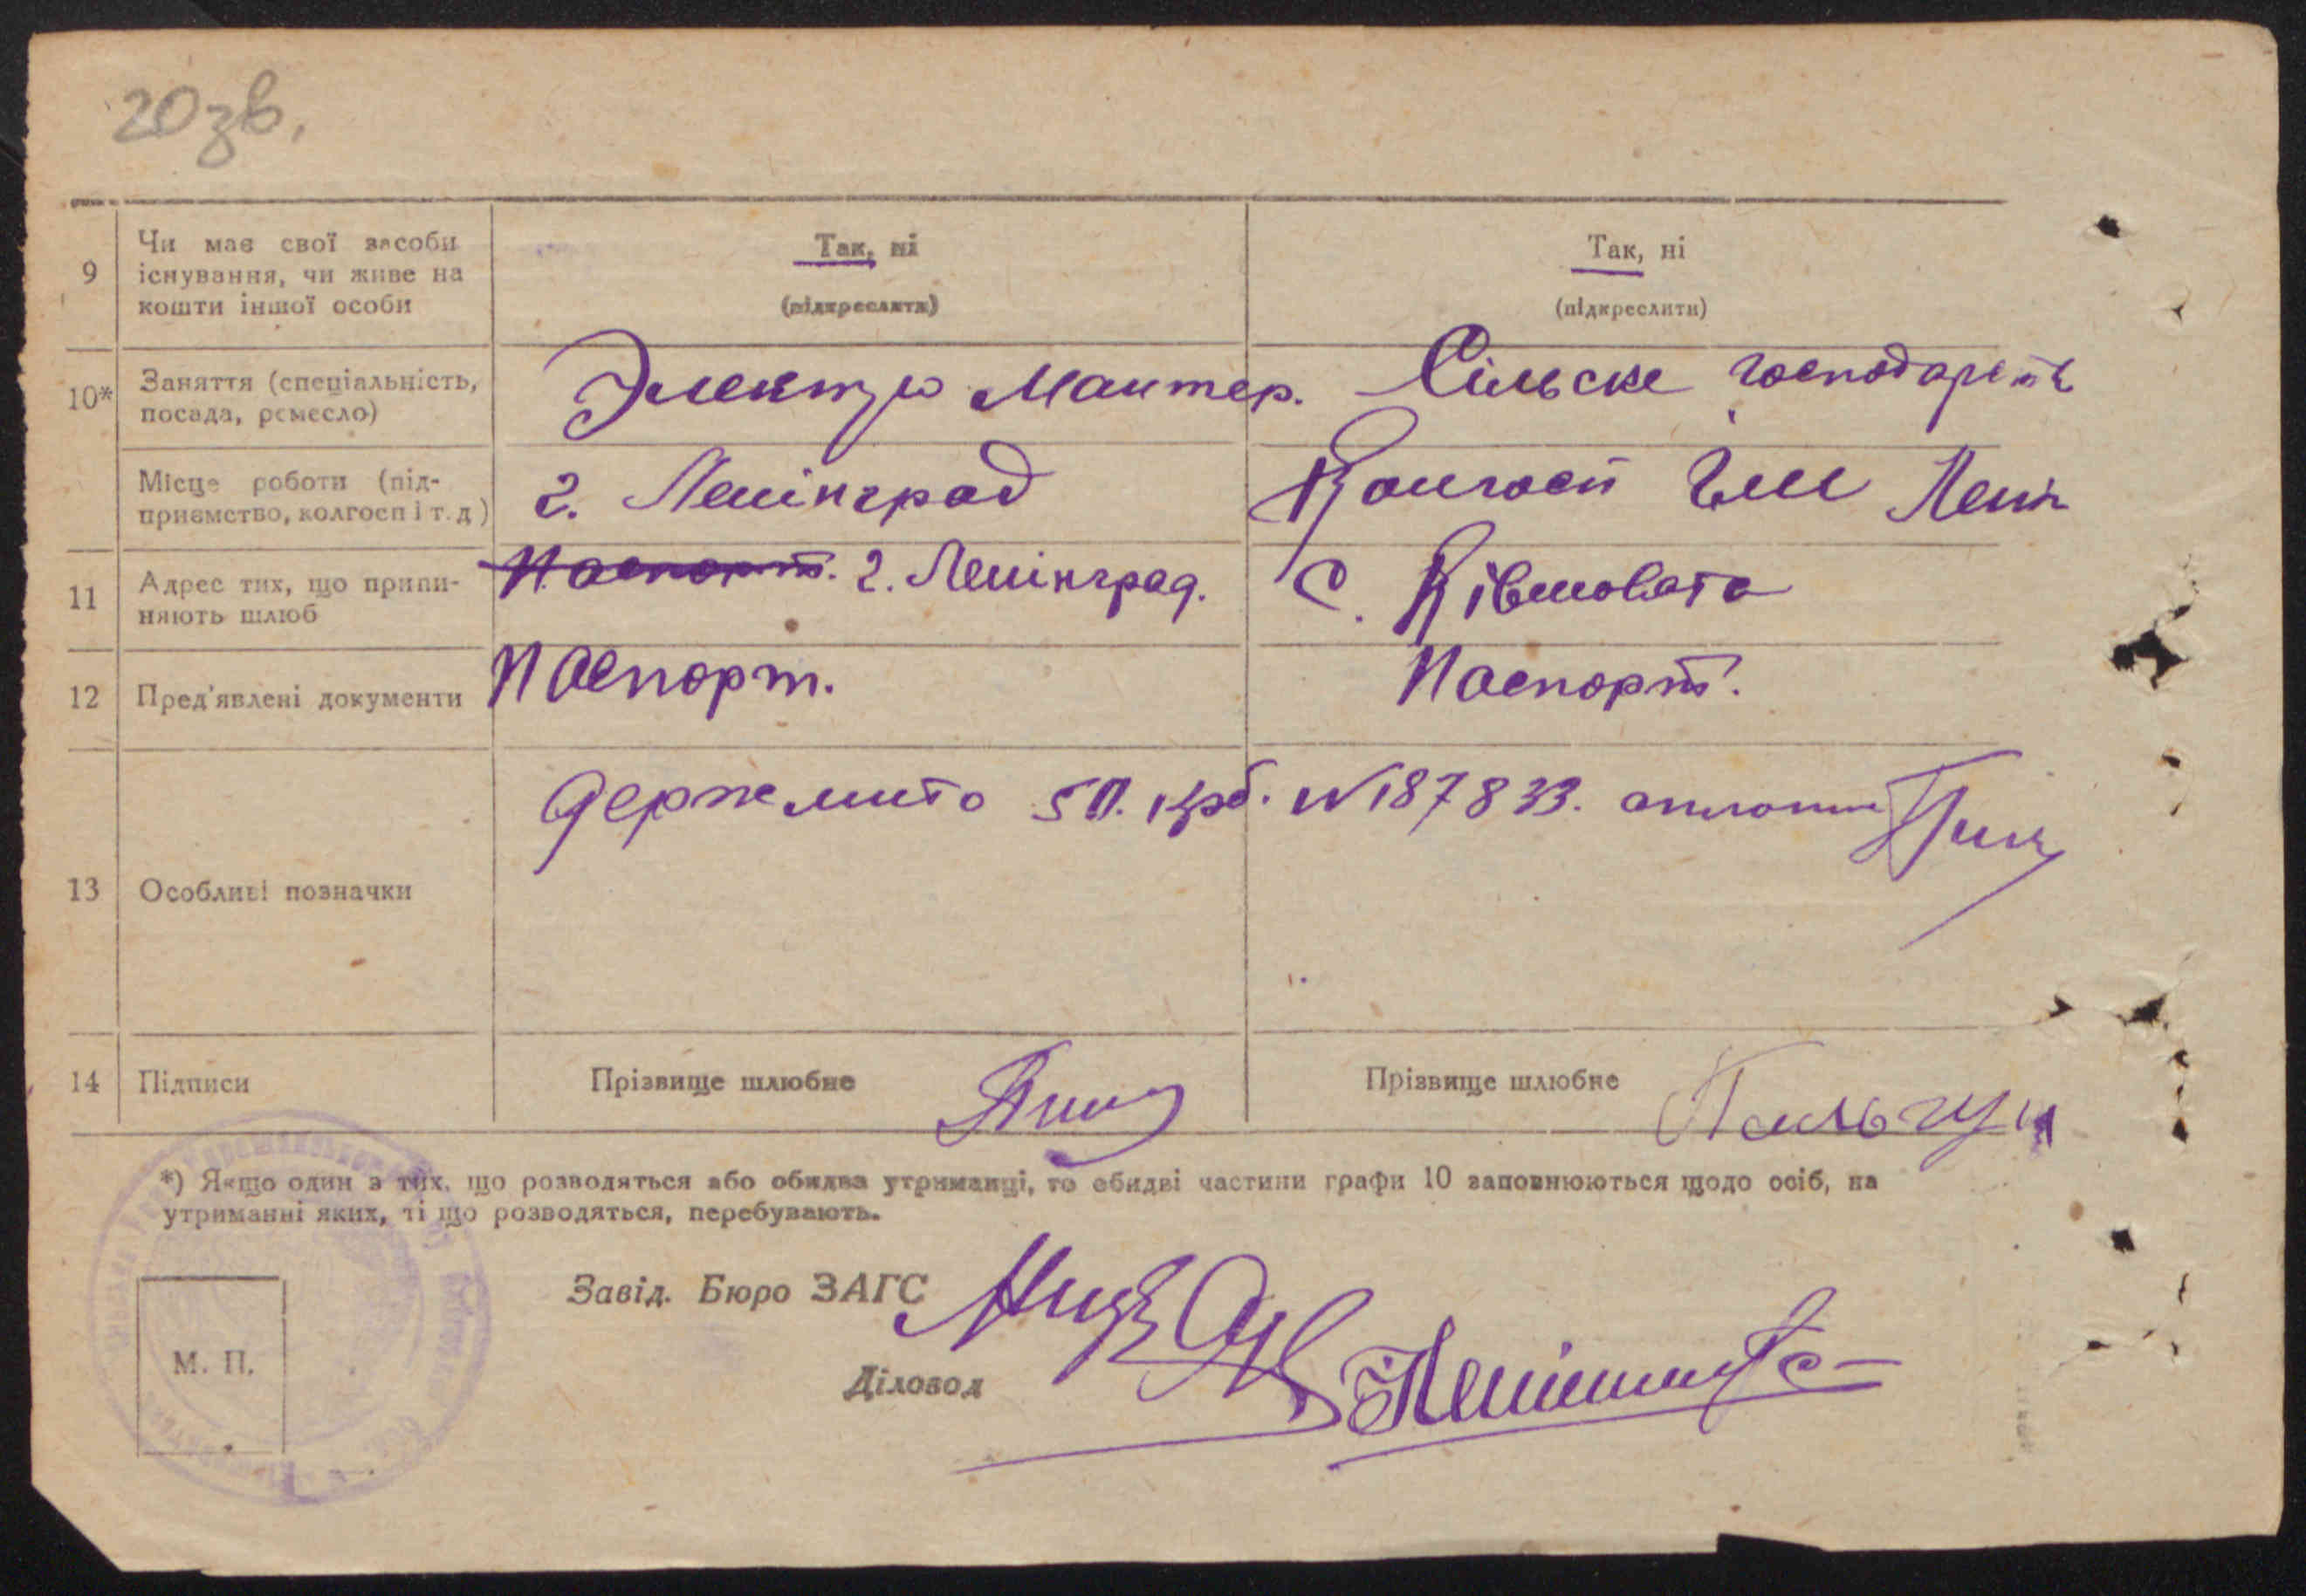 20зв.
9
Чи має свої засоби
існування, чи живе на
кошти іншої особи
Так, ні
(підкреслити)
Так, ні
(підкреслити)
10*
Заняття (спеціальність,
посада, ремесло)
Электро Мантер.
Сільске господарств
Місце роботи (під-
приємство, колгосп і т.д)
г. Ленінград
Колгосп Ім Лен
11
Адрес тих, що припи-
няють шлюб
Паспорт. г. Ленінград.
с. Ківшовата
12
Пред'явлені документи
Паспорт.
Паспорт.
13
Особливі позначки
Держмито 50. крб. №187833.
14
Підписи
Прізвище шлюбне
Прізвище шлюбне
*) Якщо один з тих, що розводяться або обидва утриманці, то обидві частини графи 10 заповнюються щодо осіб, на
утриманні яких, ті що розводяться, перебувають.
Завід. Бюро ЗАГС
Діловод
М. П.